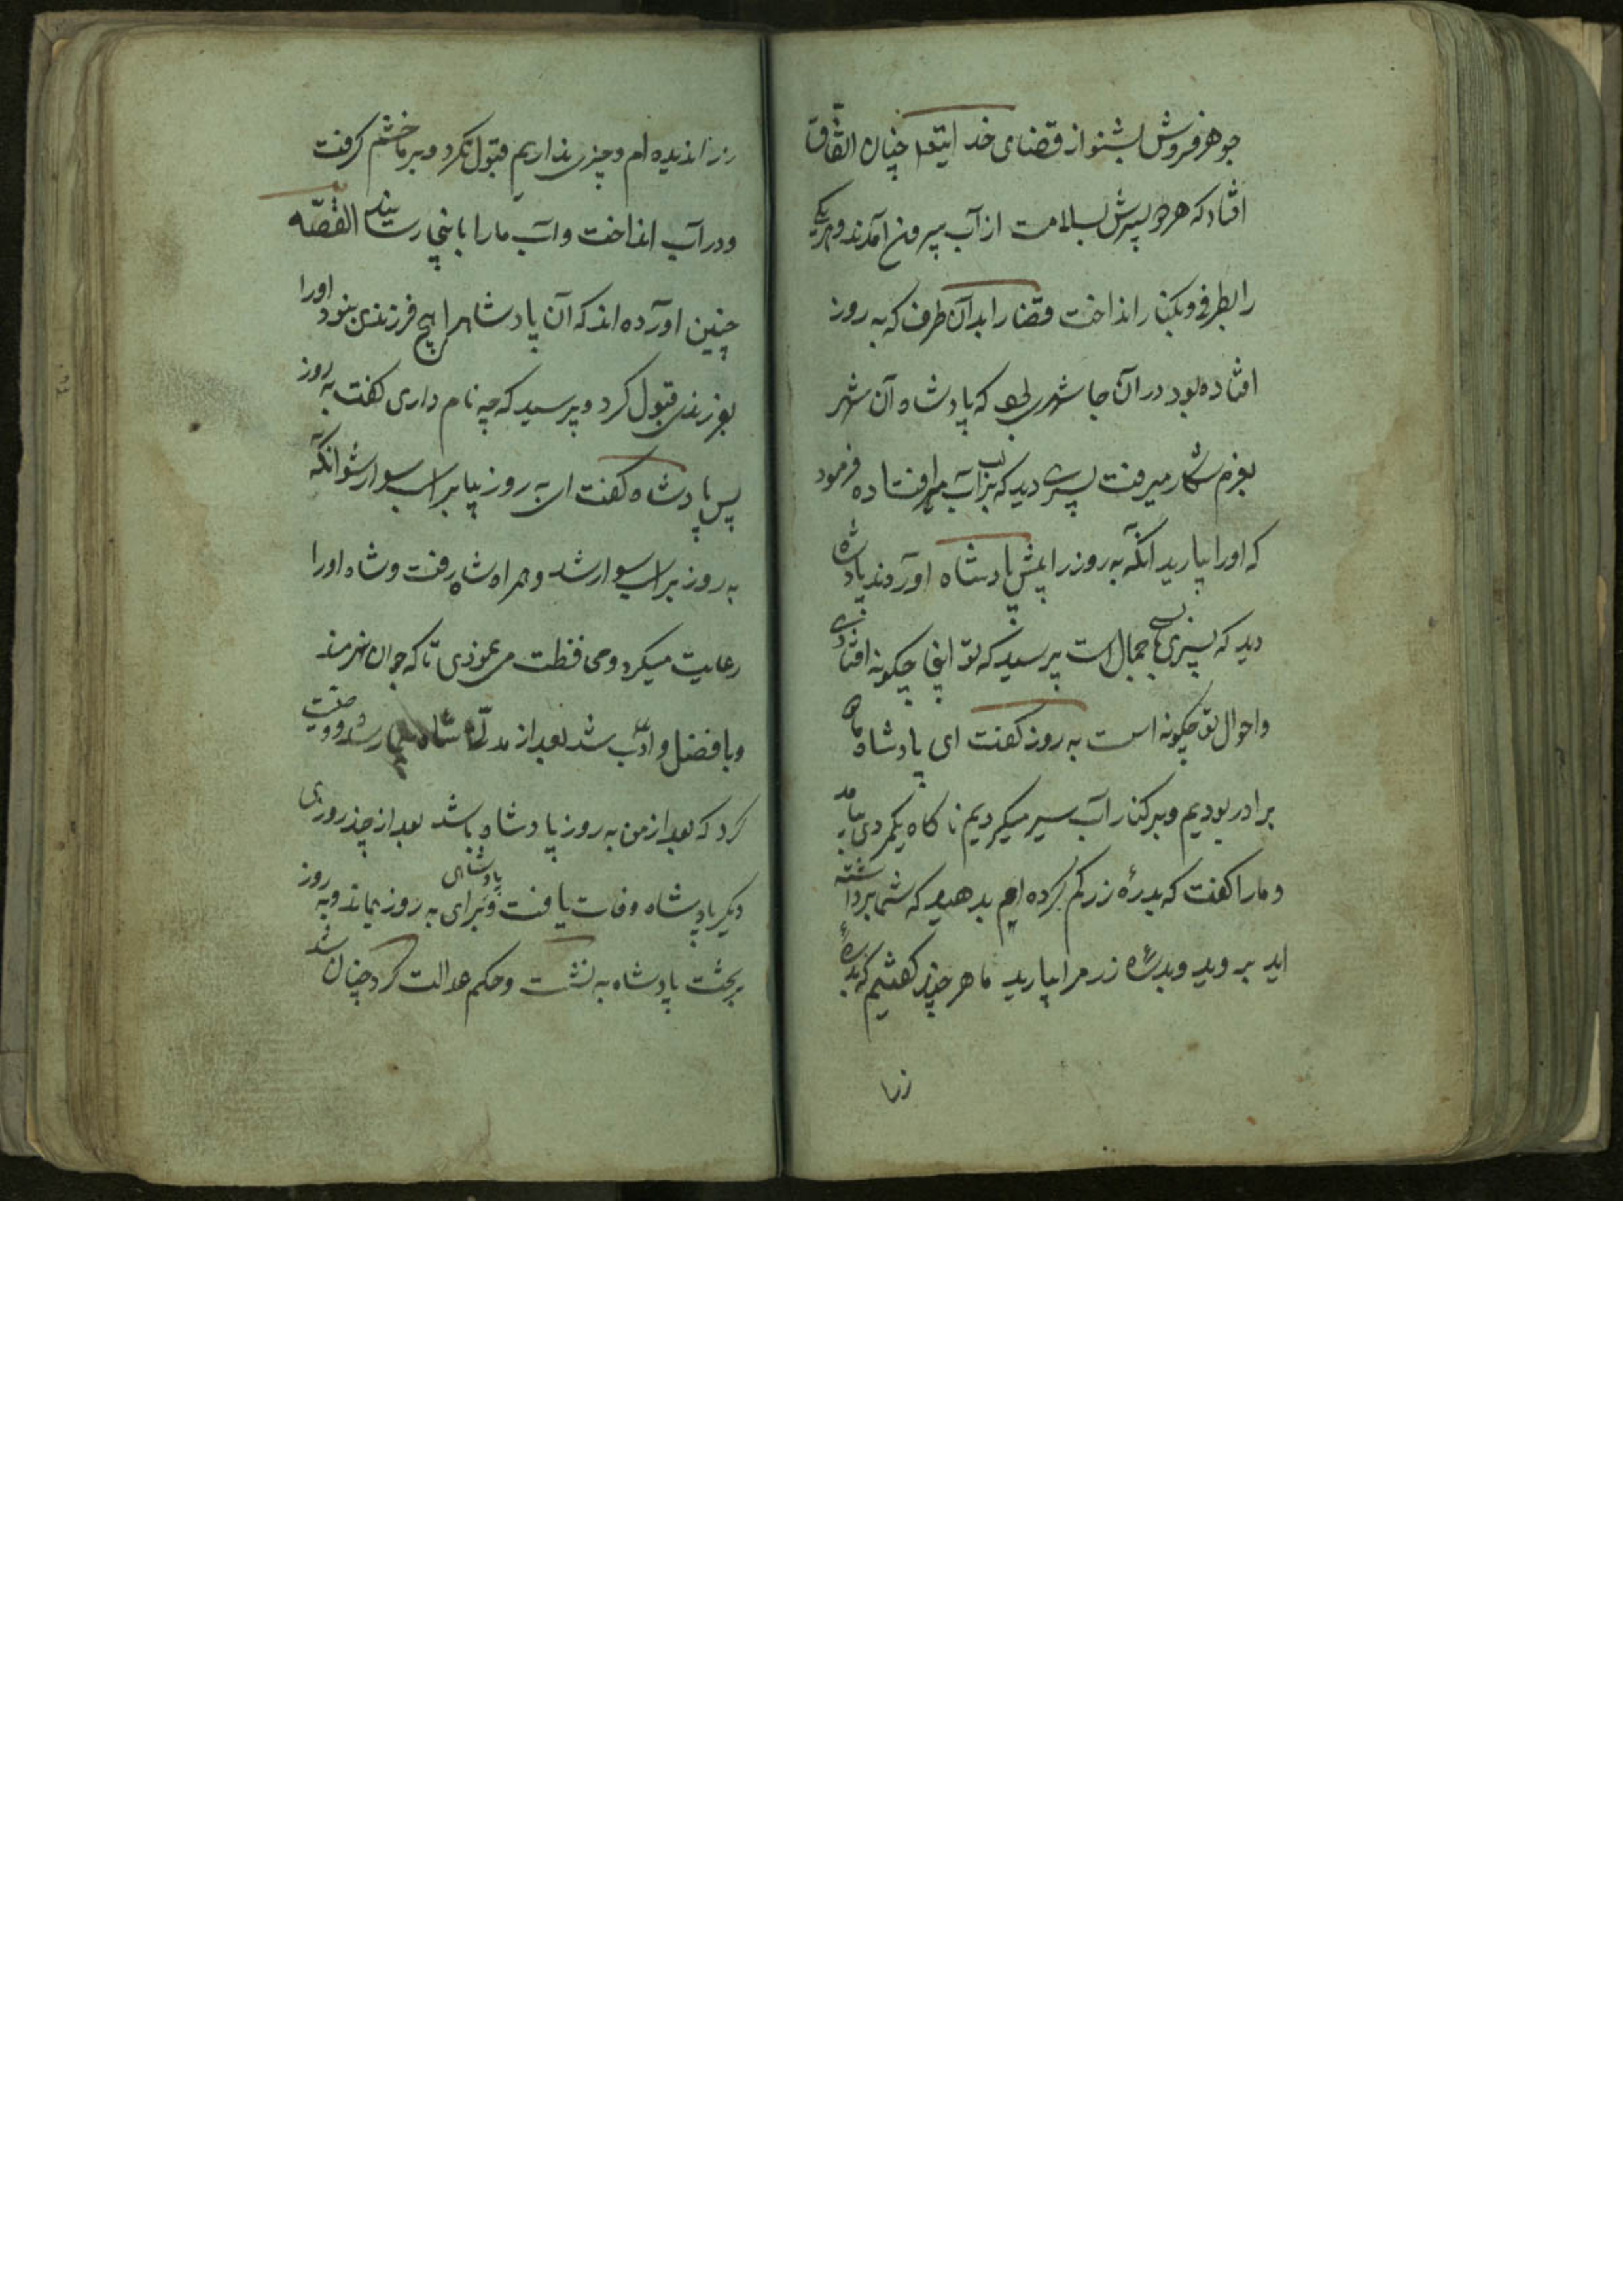 جوهر فروش بشنو از قضای خدایتعا چنان اتفاق
افتاد که هر دو پسرش بسلامت از آب بیرون آمدند و هر یکی
را بطرفی و بکنار انداخت قضا را بدان طرف که به روز
افتاده بود در آن جا شهری بود که پادشاه آن شهر
بعزم شکار میرفت پسری دید که بر لب آب افتاده فرمود
که اورا بیارید انگه به روز را پیش پادشاه اوردند پادشاه
دید که پسری با جمال است پرسید که تو اینجا چکونه افتادی
و احوال تو چکونه است به روز کفت ای پادشاه ما
برادر بودیم و بر کنار آب سیر میکردیم نا کاه یکمردی بیامد
و مارا کفت که بدرهٔ زر کم کرده ام بدهید که شما برداشته
اید بروید و بدرهٔ زر مرا بیارید ما هر چند کفتیم که بدرهٔ
زر ا
زر اندیده ام و چیزی نداریم قبول نکرد و بر ما خشم کرفت
و در آب انداخت و آب مارا باینجا رسانید القصّه
چنین اورده اند که آن پادشاه را هیچ فرزندی نبود اورا
بفرزندی قبول کرد و پرسید که چه نام داری کفت به روز
پس پادشاه کفت ای به روز بیا بر اسب سوار شو انگه
به روز بر اسب سوار شد و همراه شاه رفت و شاه اورا
رعایت میکرد و محافظت می نمودی تا که جوان هنرمند
و با فضل و ادب شد بعد از مدتی شاه بیمار شد و وصیت
کرد که بعد از من به روز پادشاه باشد بعد از چند روزی
دیکر پادشاه وفات یافت و پادشاهی برای به روز بماند و به روز
بر تخت پادشاه به نشست و حکم عدالت کرد چنان شد